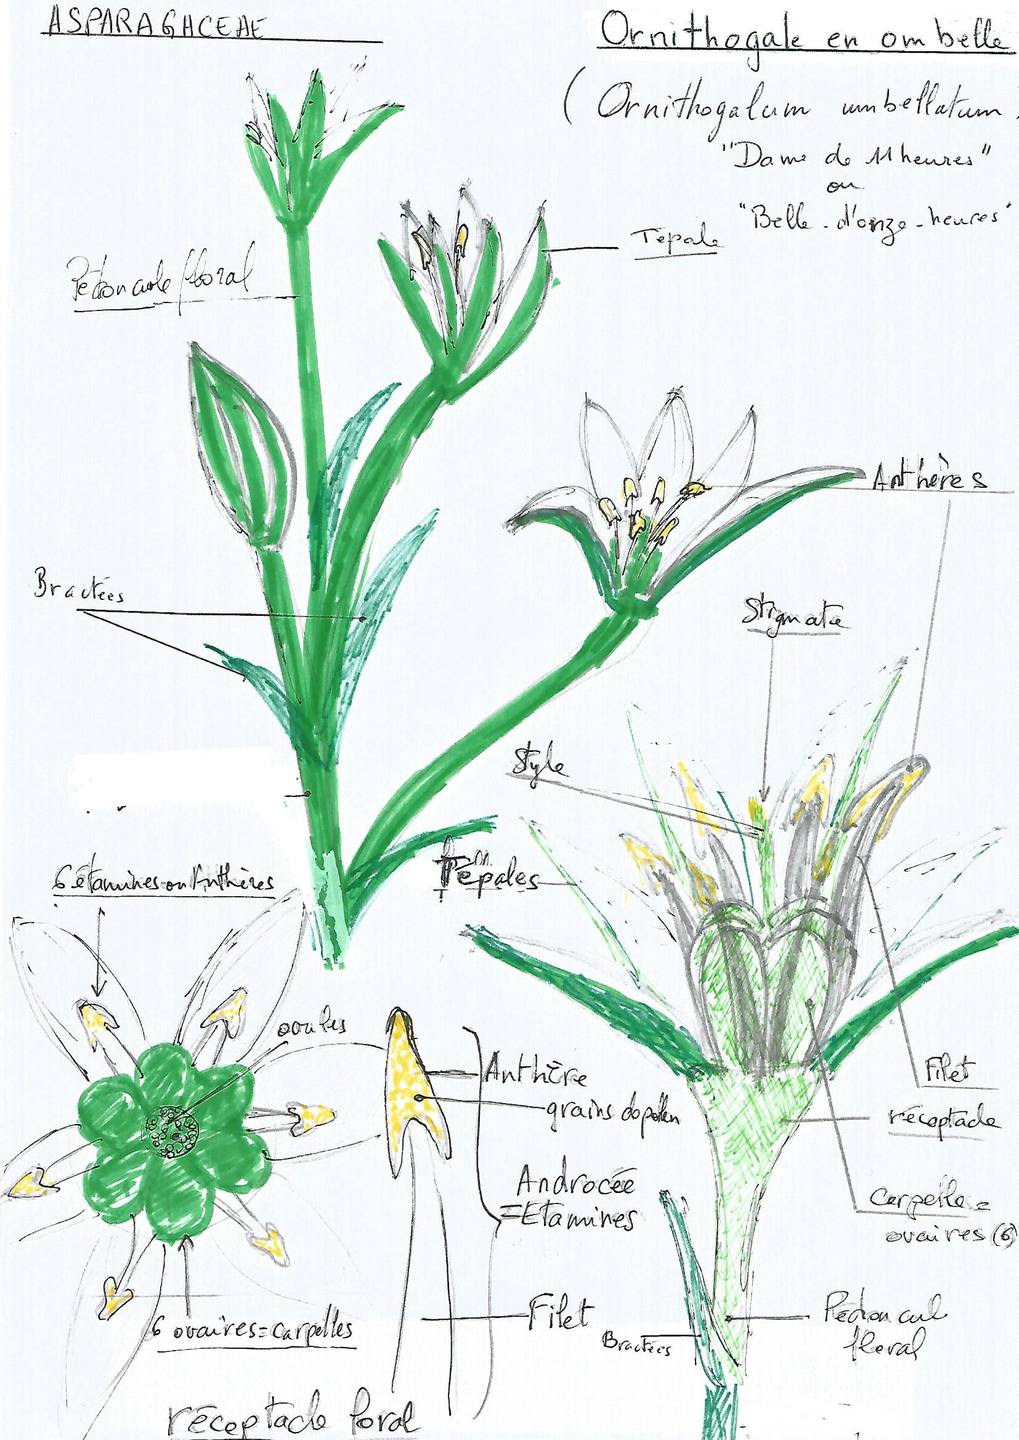 ASPARAGACEAE
Ornithogale en ombelle
(Ornithogalum umbellatum)
"Dame de 11 heures"
ou
"Belle-d'onze-heures"
Tépale
Pédoncule floral
Anthères
Bractées
Stigmate
Style
Tépales
6 étamines ou Anthères
ovules
Anthère
grains de pollen
Filet
réceptacle
Androcée
=Etamines
Carpelle=
ovaires (6)
Filet
Pédoncul
floral
Bractées
6 ovaires=carpelles
réceptacle floral